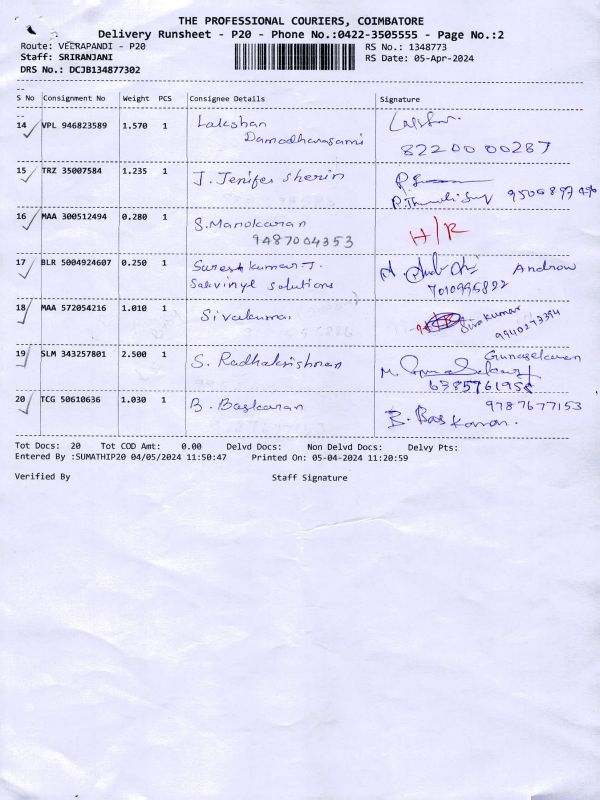 THE PROFESSIONAL COURIERS, COIMBATORE
Delivery Runsheet - P20 - Phone No.:0422-3505555 - Page No.:2
Route: VEERAPANDI - P20 RS No.: 1348773
Staff: SRIRANJANI RS Date: 05-Apr-2024
DRS No.: DCJB134877302
S No Consignment No Weight PCS Consignee Details Signature
14 VPL 946823589 1.570 1 Lakshan
Damodharasami
8220000287
15 TRZ 35007584 1.235 1 J. Jenifer Sherin
16 MAA 300512494 0.280 1 S. Manokaran H/R
9487004353
17 BLR 5004924607 0.250 1 Sureshkumar J. Androw
Sakvinyl Solutions 7010995892
18 MAA 572054216 1.010 1 Sivakumar Sivakumar
9940273394
19 SLM 343257801 2.500 1 S. Radhakrishnan Gunasekaran
6385761955
20 TCG 50610636 1.030 1 B. Baskaran 9787677153
B. Baskaran.
Tot Docs: 20 Tot COD Amt: 0.00 Delvd Docs: Non Delvd Docs: Delvy Pts:
Entered By :SUMATHIP20 04/05/2024 11:50:47 Printed On: 05-04-2024 11:20:59
Verified By Staff Signature